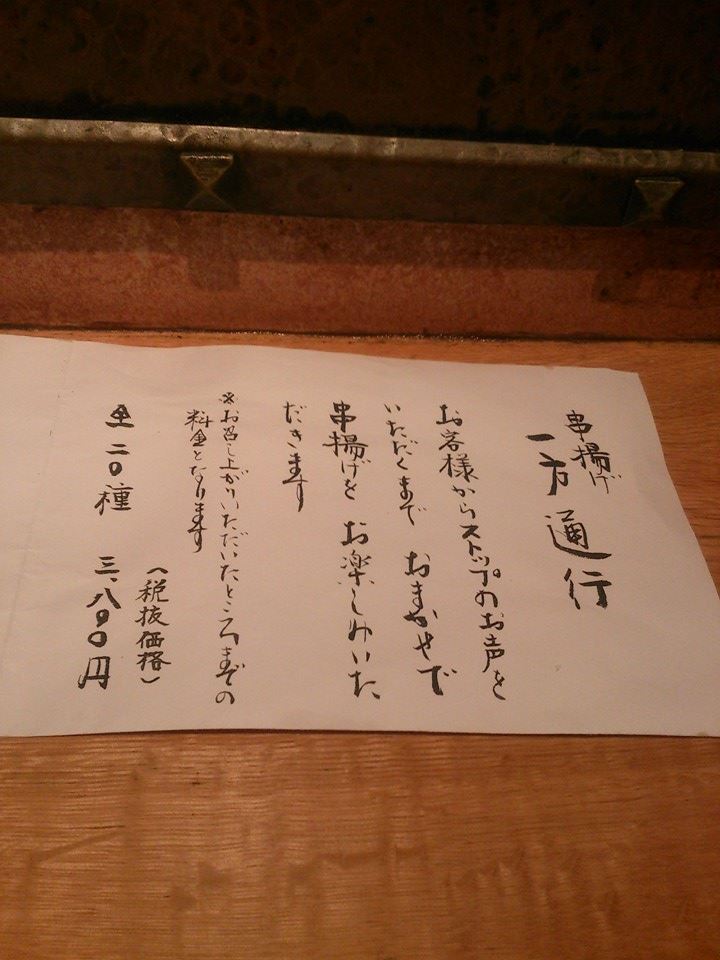 串揚げ
一方通行
お客様からストップのお声を
いただくまで おまかせで
串揚げを お楽しみいた
だきます
※お召し上がりいただいたところまでの
料金となります
(税抜価格)
全二〇種 三、八〇〇円